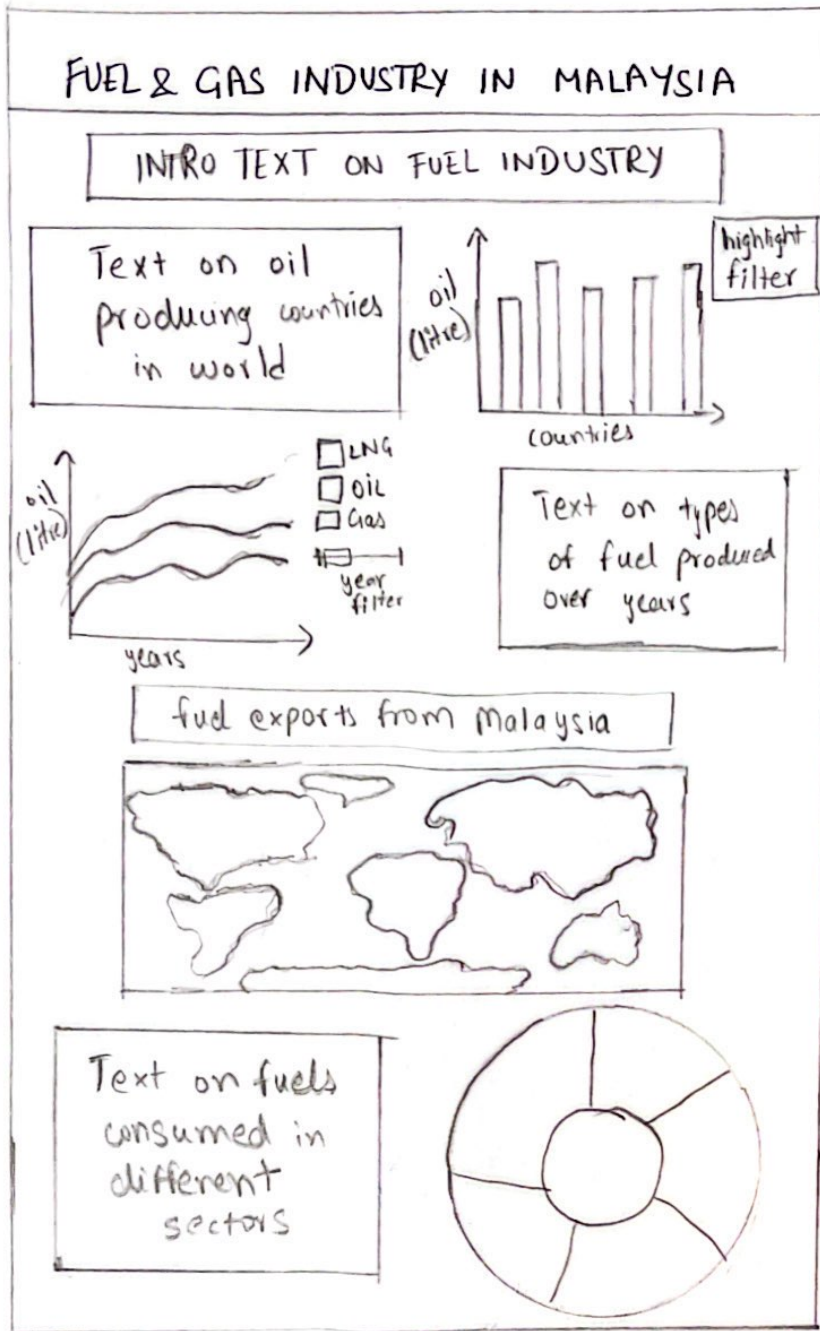 FUEL & GAS INDUSTRY IN MALAYSIA
INTRO TEXT ON FUEL INDUSTRY
Text on oil
producing countries
in world
oil
(litre)
countries
highlight
filter
oil
(litre)
years
LNG
Oil
Gas
year
filter
Text on types
of fuel produced
over years
fuel exports from Malaysia
Text on fuels
consumed in
different
sectors